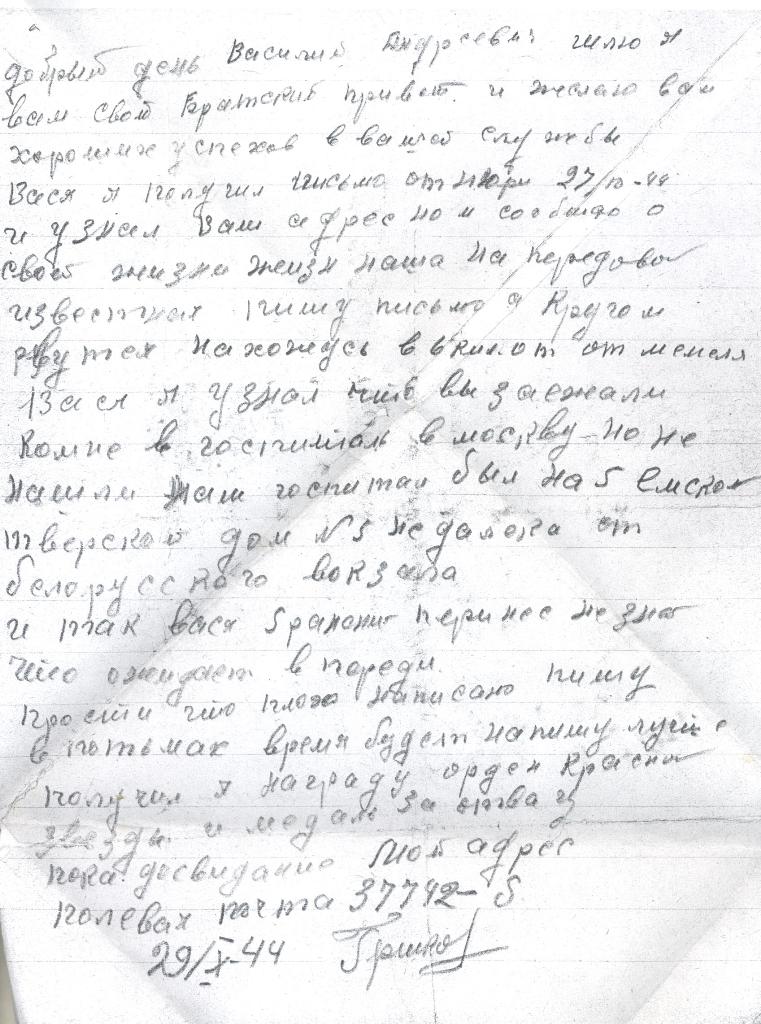 добрый день Василий Андреевич шлю я
вам свой Братский привет и желаю вам
хороших успехов в вашей службы
Вася я получил письмо от Нюри 27/ -44
и узнал Ваш адрес но и сообщаю о
своей жизни жизн наша на передовой
известная пишу письмо а Кругом
рвутся нахожусь в от мемеля
Вася я узнал что вы заежали
комне в госпиталь в москву но не
нашли наш госпитал был на 5 Емской
тверской дом №3 недалека от
белорусского вокзала
и так вася 5 ранений перинес не знаю
что ожидает в переди.
прости что плохо написано пишу
в потьмах время будет напишу лучше
получил я награду орден Красной
звезды и медаль За отвагу
пока досвидание Мой адрес
полевая почта 37792-Б
29/X-44 Гришка